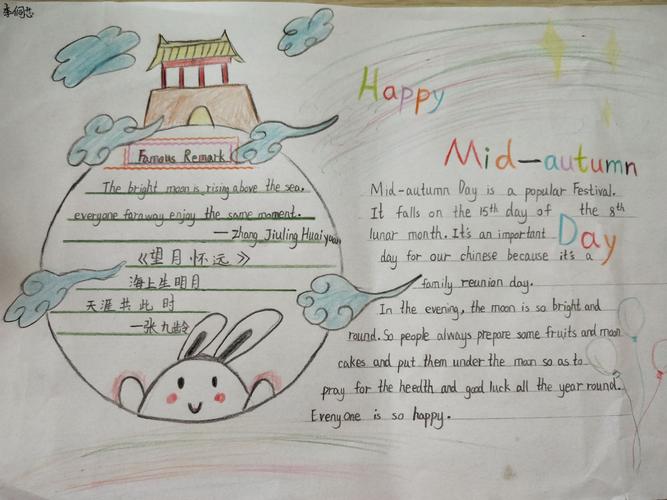 Happy
Mid-autumn
Day
Famous Remark
The bright moon is rising above the sea.
everyone faraway enjoy the same moment.
—Zhang Jiuling Huaiyuan
《望月怀远》
海上生明月
天涯共此时
—张九龄
Mid-autumn Day is a popular Festival.
It falls on the 15th day of the 8th
lunar month. It's an important
day for our chinese because it's a
family reunion day.
In the evening, the moon is so bright and
round. So people always prepare some fruits and moon
cakes and put them under the moon so as to
pray for the heedth and good luck all the year round.
Everyone is so happy.